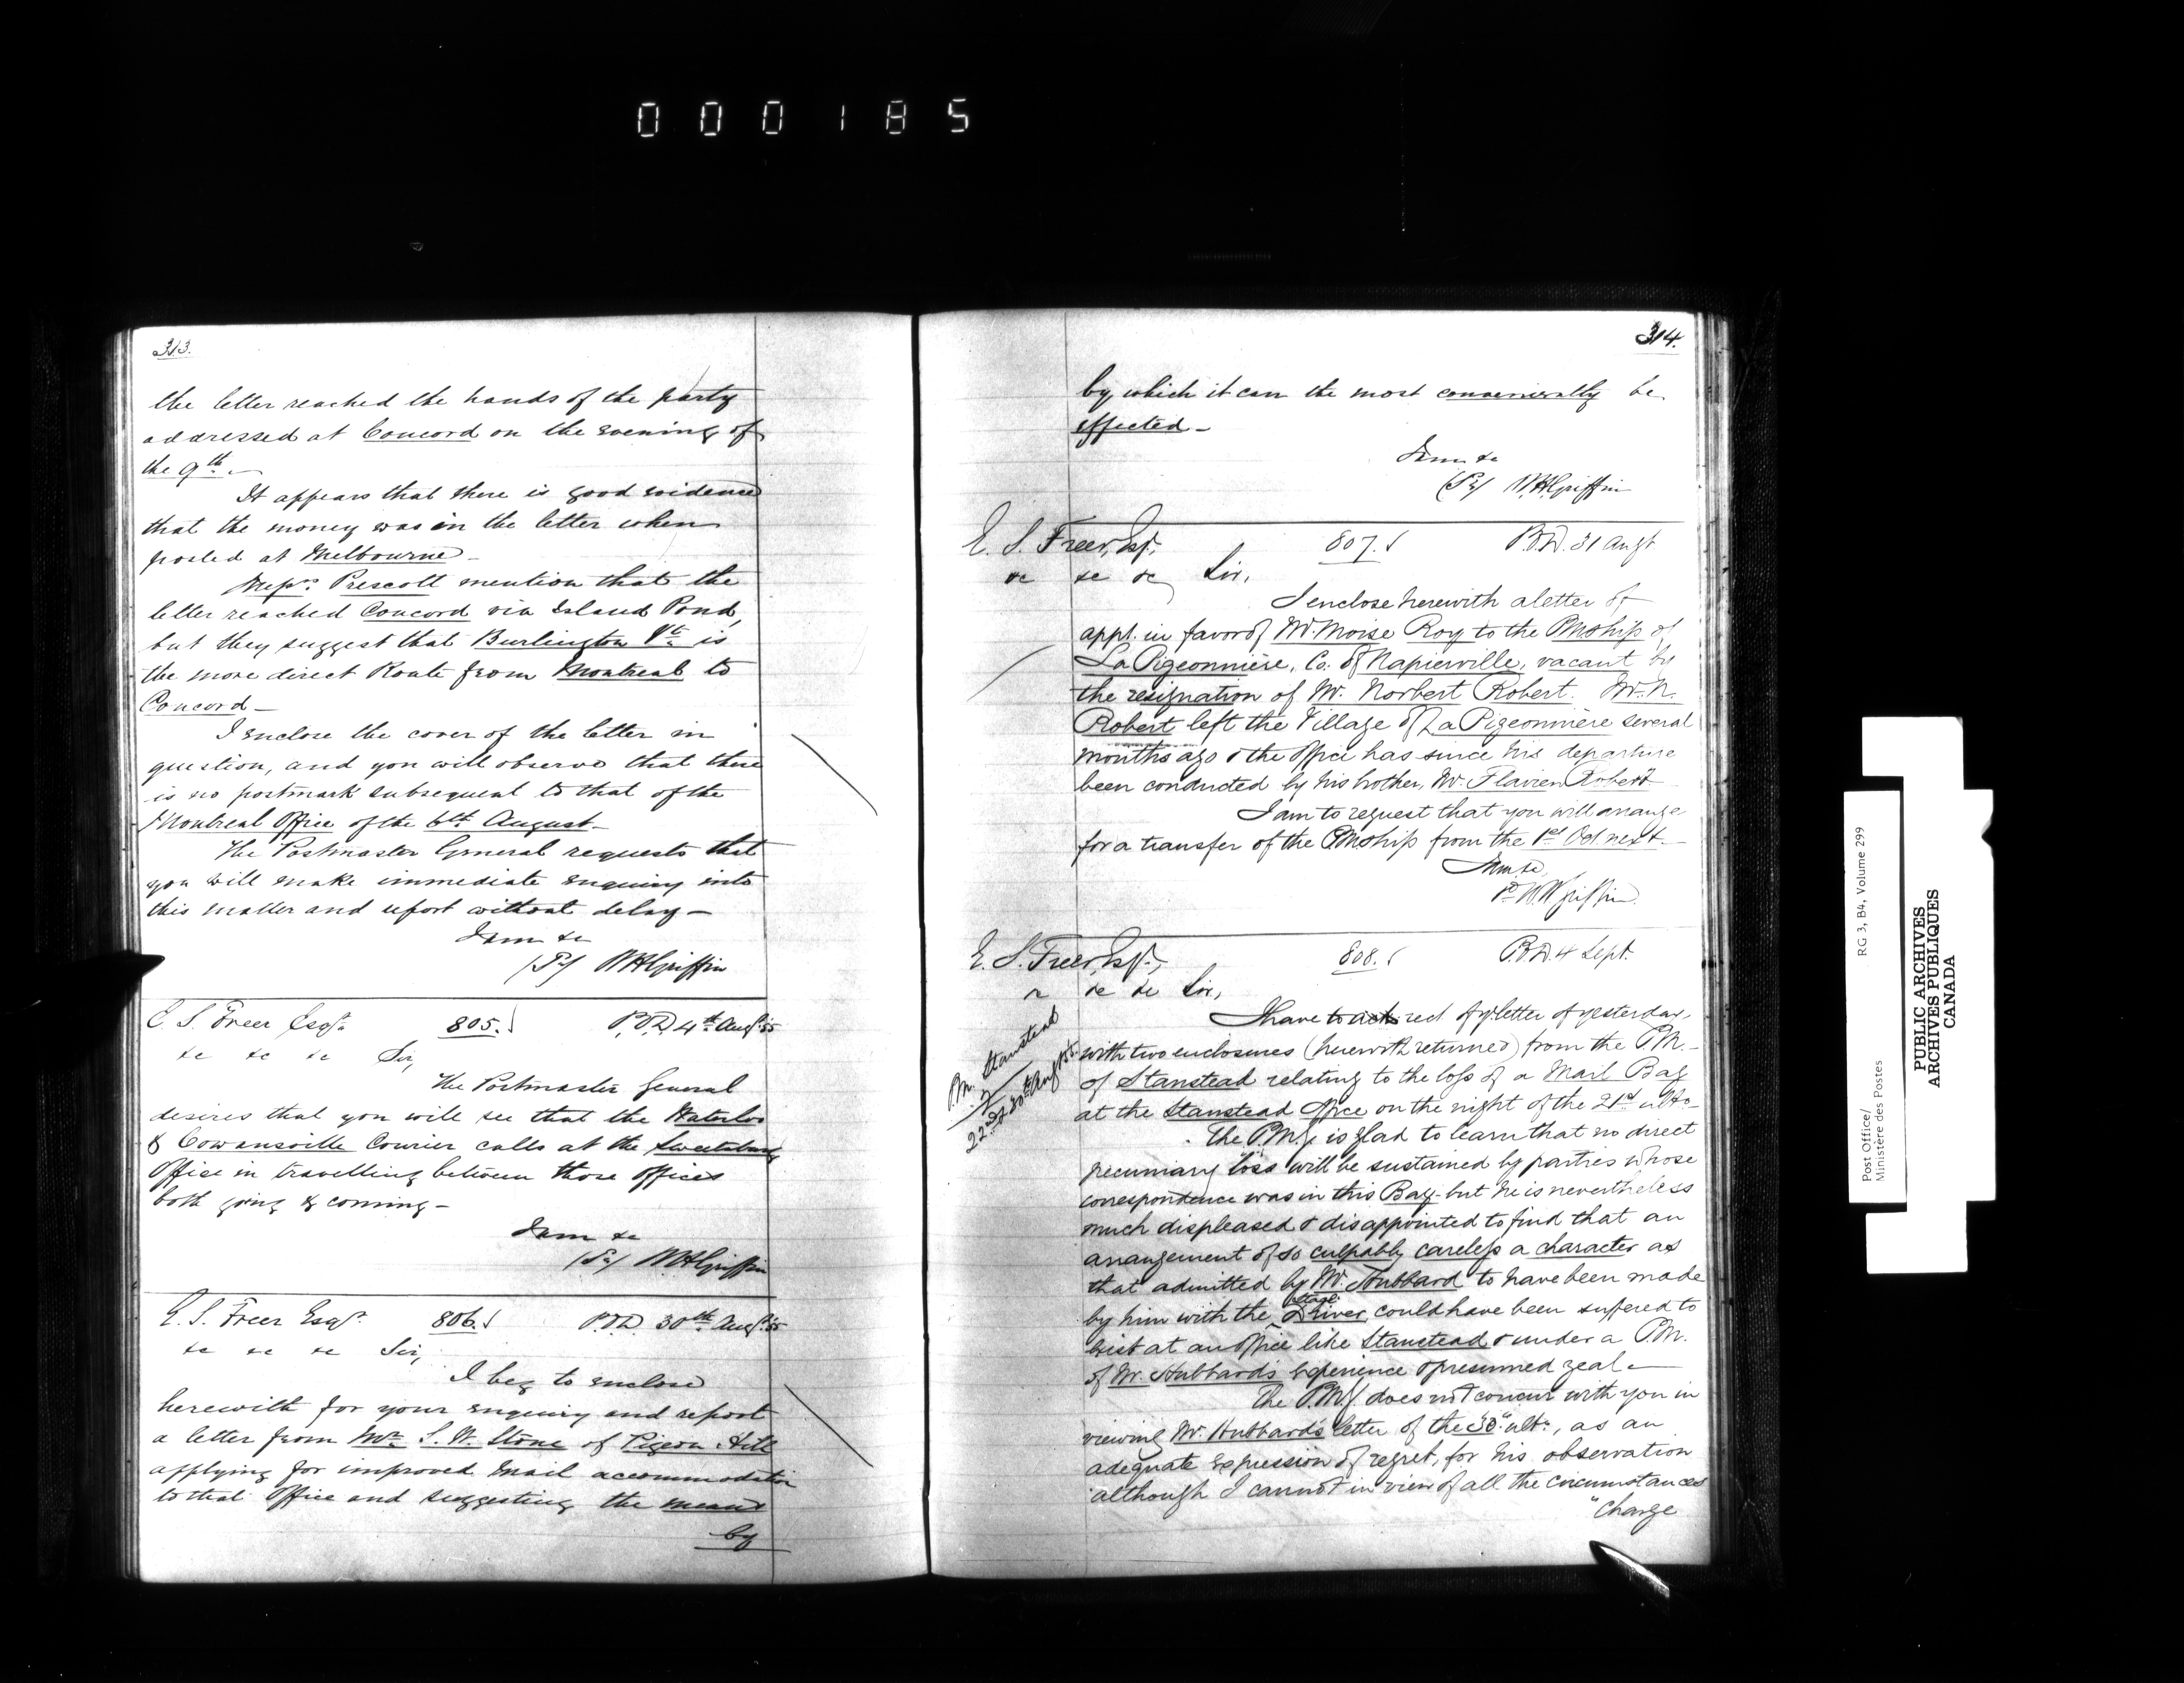 000185
313.
the letter reached the hands of the party
addressed at Concord on the evening of
the 9th -
It appears that there is good evidence
that the money was in the letter when
posted at Melbourne -
Messrs Prescott mention that the
letter reached Concord via Island Pond,
but they suggest that Burlington Vt is
the more direct Route from Montreal to
Concord -
I enclose the cover of the letter in
question, and you will observe that there
is no postmark subsequent to that of the
Montreal Office of the 6th August -
The Postmaster General requests that
you will make immediate enquiry into
this matter and report without delay -
I am &c
(Sd) W H Griffin
E. S. Freer Esqr. 805. P.O.D. 4th Augt. 55
&c &c &c Sir,
The Postmaster General
desires that you will see that the Waterloo
& Cowansville Courier calls at the Sweetsburg
Office in travelling between those offices
both going & coming -
I am &c
(Sd) W H Griffin
E. S. Freer Esqr. 806. P.O.D. 30th Augt. 55
&c &c &c Sir,
I beg to enclose
herewith for your enquiry and report
a letter from Mr. S. W. Stone of Pigeon Hill
applying for improved Mail accommodation
to that Office and suggesting the means
by
314.
by which it can the most conveniently be
effected -
I am &c
(Sd) W. H. Griffin
E. S. Freer, Esq. 807. P.O.D. 31 Augt
&c &c &c Sir,
I enclose herewith a letter of
appt. in favor of Mr. Moise Roy to the PMship of
La Pigeonnière, Co. of Napierville, vacant by
the resignation of Mr. Norbert Robert. Mr. N.
Robert left the Village of La Pigeonnière several
months ago & the office has since his departure
been conducted by his brother, Mr. Flavien Robert.
I am to request that you will arrange
for a transfer of the PMship from the 1st Oct. next. -
I am &c,
W H Griffin.
E. S. Freer, Esq., 808. P.O.D. 4 Sept.
&c &c Sir,
P.M. Stanstead
22nd & 30th Augt 55.
I have to ack recd of yr letter of yesterday,
with two enclosures (herewith returned) from the P.M. -
of Stanstead relating to the loss of a Mail Bag
at the Stanstead Office on the night of the 21st ulto -
The P.M.G. is glad to learn that no direct
pecuniary loss will be sustained by parties whose
correspondence was in this Bag - but he is nevertheless
much displeased & disappointed to find that an
arrangement of so culpably careless a character as
that admitted by Mr. Hubbard to have been made
by him with the Stage Driver, could have been suffered to
exist at an office like Stanstead & under a P.M.
of Mr. Hubbard's experience & presumed zeal -
The P.M.G. does not concur with you in
viewing Mr. Hubbard's letter of the 30th ulto., as an
adequate expression of regret, for his observation
"although I cannot in view of all the circumstances
"charge
Post Office/ RG 3, B4, Volume 299
Ministère des Postes
PUBLIC ARCHIVES
ARCHIVES PUBLIQUES
CANADA